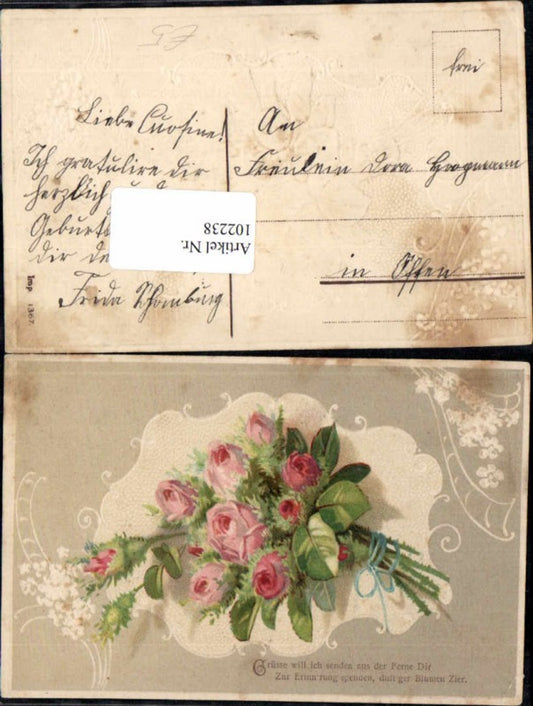 frei
Liebe Cuosine!
Ich gratulire dir
herzlich
Geburt
dir
Freda Schomburg
An
Fräulein Dora
in Essen
Artikel Nr.
102238
Imp 1367
Grüsse will ich senden aus der Ferne Dir
Zur Erinn'rung spenden, duft'ger Blumen Zier.